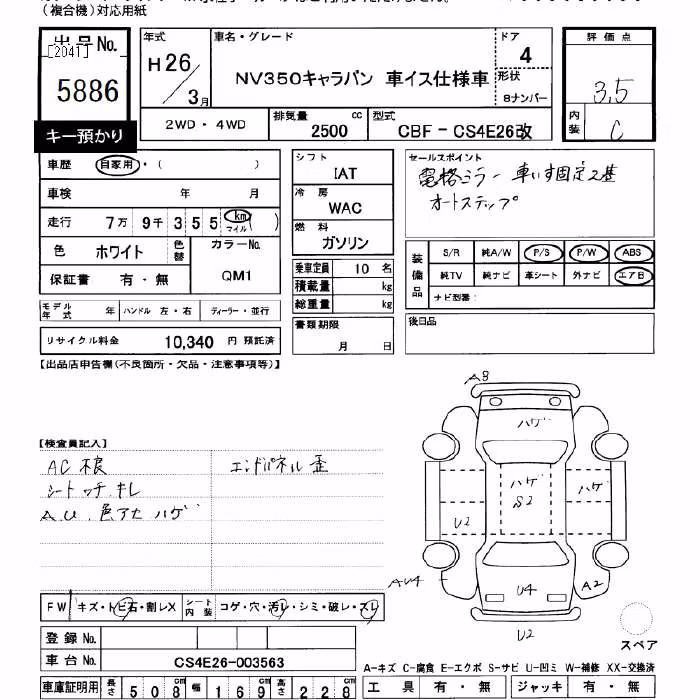 （複合機）対応用紙
出品No.
[2041]
5886
キー預かり
年式
H26/3月
車名・グレード
NV350キャラバン 車イス仕様車
ドア
4
形状
8ナンバー
評価点
3.5
内装
C
2WD・4WD
排気量
2500 cc
型式
CBF-CS4E26改
車歴
自家用・( )
車検 年 月
走行 7万 9千 3 5 5 km マイル( )
色 ホワイト
色替
カラーNo.
QM1
保証書 有・無
シフト
IAT
冷房
WAC
燃料
ガソリン
乗車定員 10 名
積載量 kg
総重量 kg
書類期限
月 日
セールスポイント
電格ミラー 車いす固定2基
オートステップ
装備品
S/R 純A/W P/S P/W ABS
純TV 純ナビ 革シート 外ナビ エアB
ナビ型番：
後日品
モデル年式 年 ハンドル 左・右 ディーラー・並行
リサイクル料金 10,340 円 預託済
【出品店申告欄(不良箇所・欠品・注意事項等)】
【検査員記入】
AC不良
エンドパネル歪
シート ッチ, キレ
A.U. 色アセ ハゲ
A8
ハゲ
ハゲ
S2
ハゲ
U2
AU4
U4
A2
U2
スペア
FW キズ・トビ石・割レX
シート内装 コゲ・穴・汚レ・シミ・破レ・スレ
登録No.
車台No. CS4E26-003563
車庫証明用 長さ 508cm 幅 169cm 高さ 228cm
A-キズ C-腐食 E-エクボ S-サビ U-凹ミ W-補修 XX-交換済
工具 有・無 ジャッキ 有・無